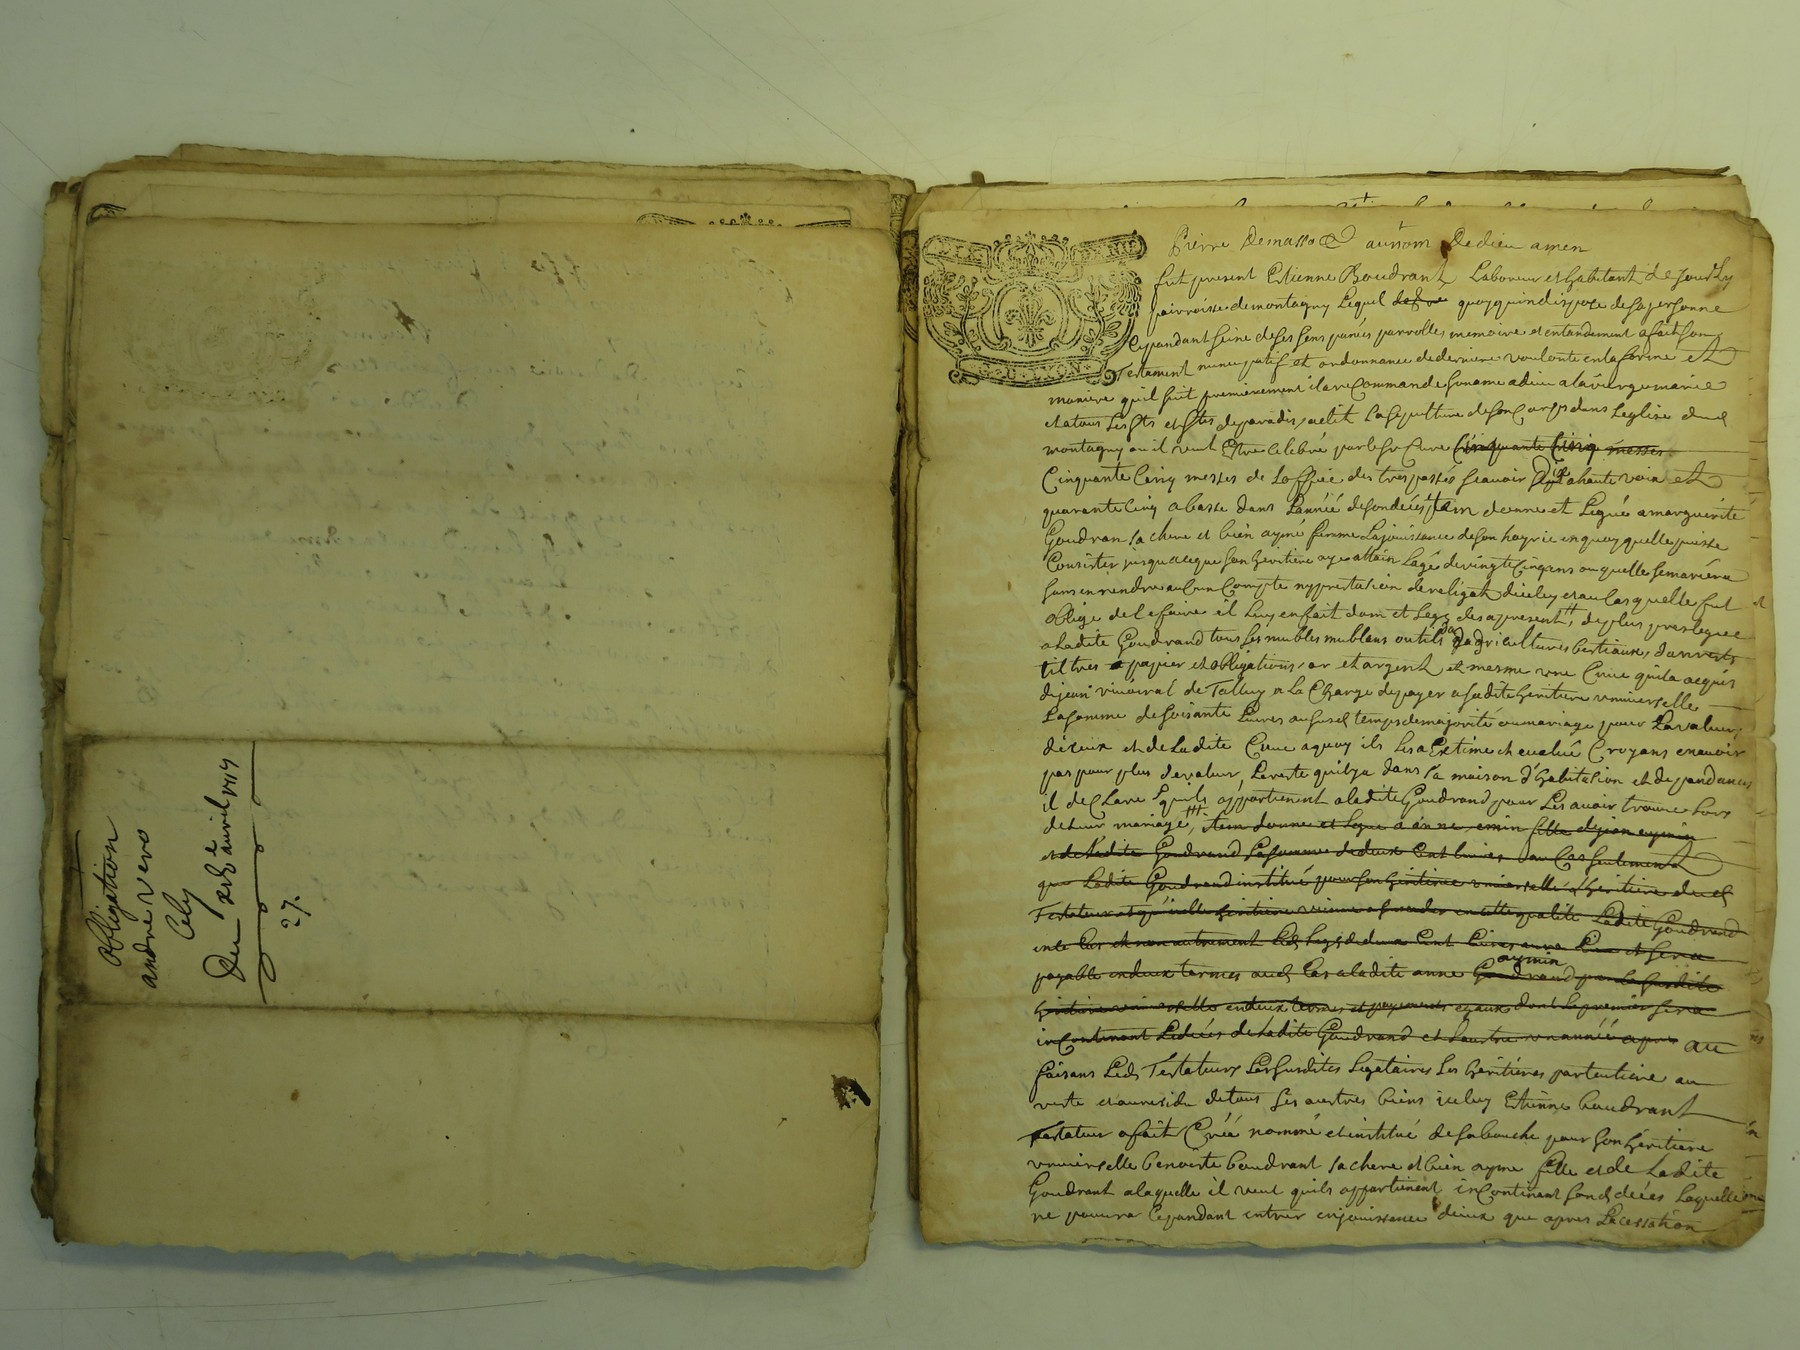 obligation
andré vero
Cely
Du avril 1719
27.
G. D. LYON
Pierre Demasso au nom De dieu amen
fut present Etienne Boudrant Laboureur et habitant de
parroisse demontagny Lequel quoyquindispose desapersonne
Cepandant seine deses sens pancés parrolles memoire et entandement afait son
Testament nuncupatif et ordonnance dederniere voulonte enlaforme et
maniere quil suit premierement ila recommandé soname adieu alavierge marie
etatous Les sts et stes deparadis, aelit Lasepulture deson Corps dans Leglise dud
montagny ou il veut Estre Celebré parle sr Curé Cinquante Cinq messes
Cinquante Cinq messes de Loffice des trespassés scavoir Dix ahaute voix et
quarante Cinq abasse dans Lannéé desondecés, Item donne et Legué amarguerite
Goudran sa chere et bien aymé femme Lajouissance deson hoyrie enquoy quelle puisse
Consister jusqu aceque son heritiere aye attain Lage devingt Cinq ans ou quelle semariera
sans enrendre aucun Compte ny prestation dereliqat diceluy et au Cas quelle fut
oblige de Lefaire il Luy enfait dom et Legs desapresent, deplus preslegue
aladite Goudrand tous ses meubles meublans outils dagricultures bestiaux, danrées
tiltres papier et obligations, or et argent, et mesme une Cuve quila acquis
dejean de Talluy ala Charge depayer asadite heritiere universelle
Lasomme desoisante Livres aususd temps demajorité oumariage pour Lavaleur
diceux et de Ladite Cuve aquoy il Lesa Extimé et evalué Croyans enavoir
pas pour plus devaleur, Lereste quilya dans sa maison d'habitation et depandances
il declare quils appartienent aladite Goudrand pour Les avoir trouvé Lors
deLeur mariage, Item donne et Legue a anne emin fille dejean eymin
et de Ladite Goudrand Lasomme dedeux Cent Livres au Cas seulement
que Ladite Goudrand institué pour son heritiere universelle Lheritiere dud
Testateur et quicelle heritiere vienne asucceder encette qualité Ladite Goudrand
ence Cas et non autrement Led Legs de deux Cent Livres aura Lieu et sera
aymin
payable endeux termes aud Cas aladite anne Goudrand par La susdite
heritiere universelle endeux termes et payements egaux dont Lepremier sera
incontinent Ledecés deladite Goudrand et Lautre une année apres au
faisans Led Testateur Les susdites Legataires ses heritieres particuliere au
reste et auresidu detous ses autres biens iceluy Etienne boudrant
Testateur afait Créé nommé et institué desabouche pour son heritiere
universelle benoiste boudrant sa chere et bien aymé fille et de Ladite
Goudrant alaquelle il veut quils appartienent incontinant sond decés Laquelle
ne pourra Cepandant entrer enjouissance diceux que apres Lacessation